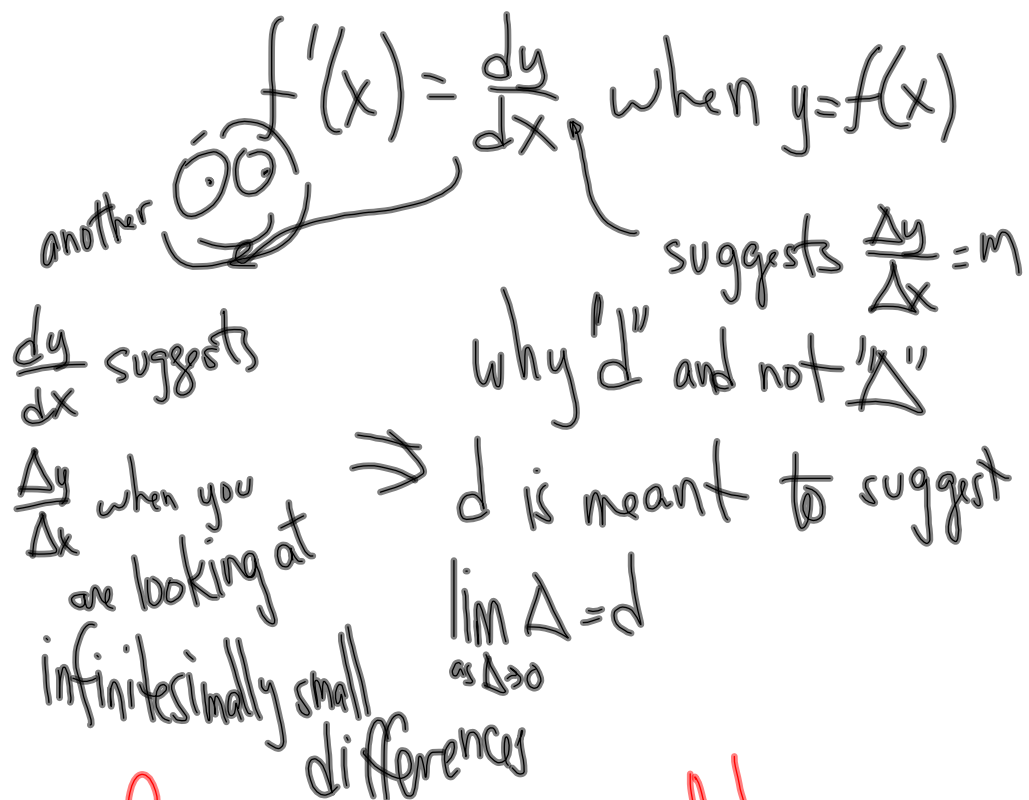 f'(x) = dy/dx when y=f(x)
another
suggests Δy/Δx = m
dy/dx suggests
Δy/Δx when you
are looking at
infinitesimally small
differences
why "d" and not "Δ"
⇒ d is meant to suggest
lim Δ = d
as Δ→0